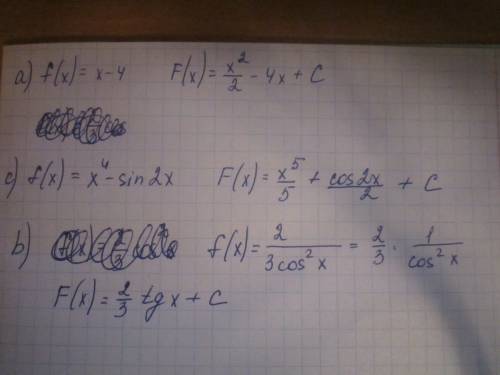 a) f(x) = x-4 F(x) = x²/2 - 4x + C
c) f(x) = x⁴ - sin 2x F(x) = x⁵/5 + cos2x/2 + C
b) f(x) = 2/(3cos²x) = 2/3 · 1/cos²x
F(x) = 2/3 tg x + C